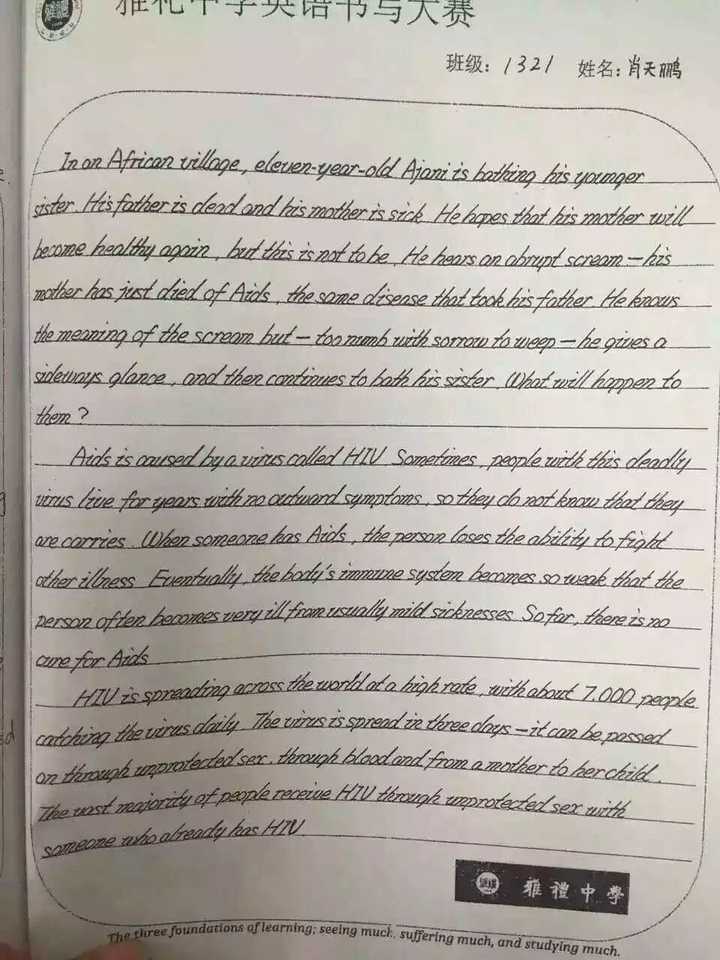 雅礼中学英语书写大赛
班级: 1321 姓名: 肖天鹏
In an African village, eleven-year-old Ajani is bathing his younger
sister. His father is dead and his mother is sick. He hopes that his mother will
become healthy again, but this is not to be. He hears an abrupt scream — his
mother has just died of Aids, the same disease that took his father. He knows
the meaning of the scream but — too numb with sorrow to weep — he gives a
sideways glance, and then continues to bath his sister. What will happen to
them?
Aids is caused by a virus called HIV. Sometimes, people with this deadly
virus live for years with no outward symptoms, so they do not know that they
are carries. When someone has Aids, the person loses the ability to fight
other illness. Eventually, the body's immune system becomes so weak that the
person often becomes very ill from usually mild sicknesses. So far, there is no
cure for Aids
HIV is spreading across the world at a high rate, with about 7,000 people
catching the virus daily. The virus is spread in three days — it can be passed
on through unprotected sex, through blood and from a mother to her child.
The vast majority of people receive HIV through unprotected sex with
someone who already has HIV
雅禮中學
The three foundations of learning; seeing much, suffering much, and studying much.